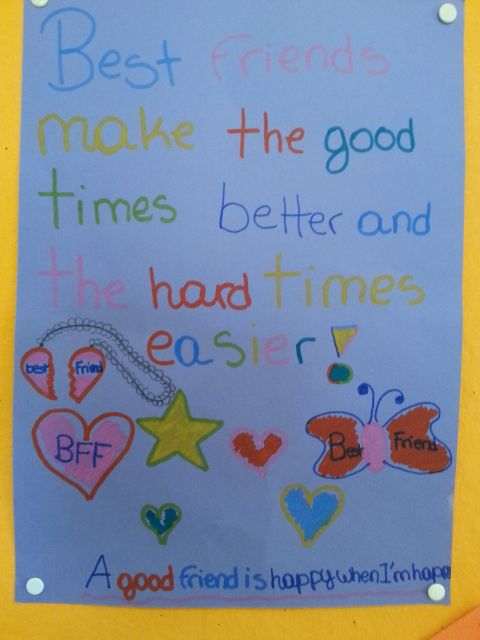 Best friends
make the good
times better and
the hard times
easier!
best Friend
BFF
Best Friend
A good friend is happy when I'm happ